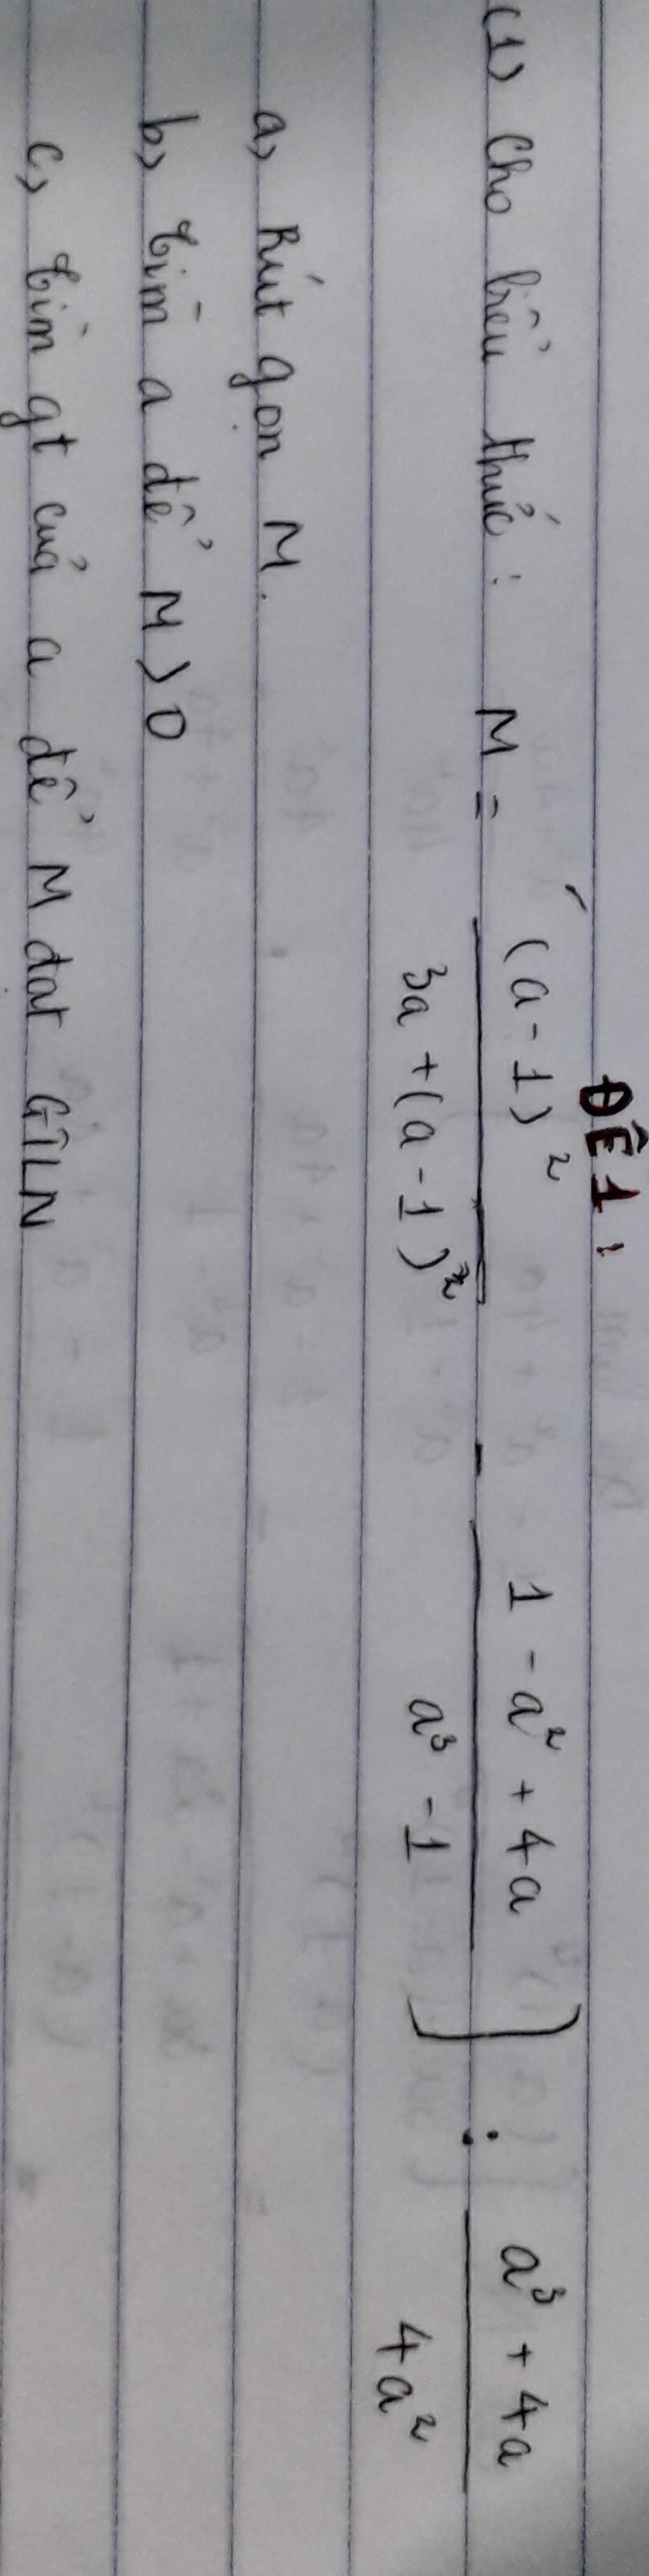 ĐỀ 1.
(1) Cho biểu thức: M = (a-1)² / 3a+(a-1)² - 1-a²+4a / a³-1 ] : a³+4a / 4a²
a, Rút gọn M.
b, Tìm a để M > 0
c, Tìm gt của a để M đạt GTLN